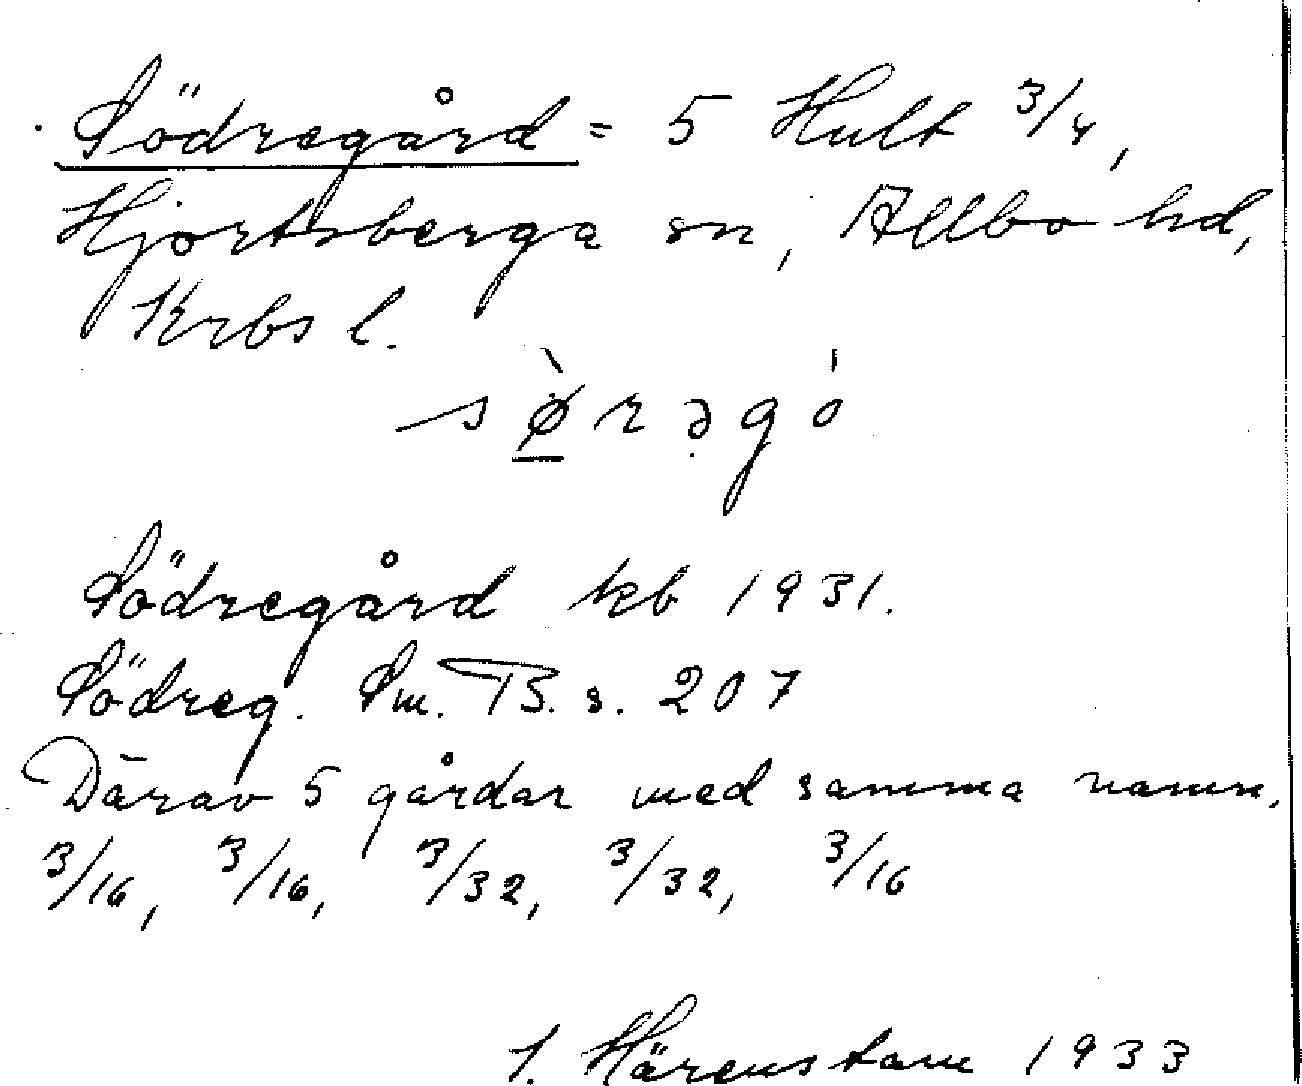 Södregård = 5 Hult 3/4,
Hjortsberga sn, Allbo hd,
Krbs l.
sø̀rəgó
Södregård kb 1931.
Södreg. Sm. B. s. 207
Därav 5 gårdar med samma namn.
3/16, 3/16, 3/32, 3/32, 3/16
Härenstam 1933